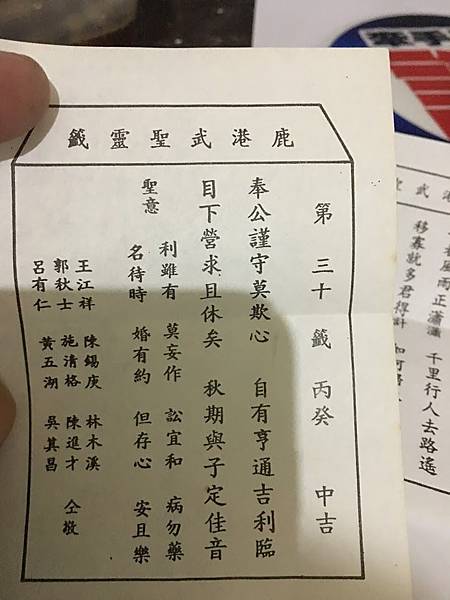 鹿港武聖靈籤
第三十籤 丙癸 中吉
奉公謹守莫欺心 自有亨通吉利臨
目下營求且休矣 秋期與子定佳音
聖意
利雖有 莫妄作 訟宜和 病勿藥
名待時 婚有約 但存心 安且樂
王江祥 陳錫庚 林木溪
郭秋士 施清格 陳進才 仝敬
呂有仁 黃五湖 吳其昌
港
風雨正瀟瀟 千里行人去路遙
移寨就多君得計 如何